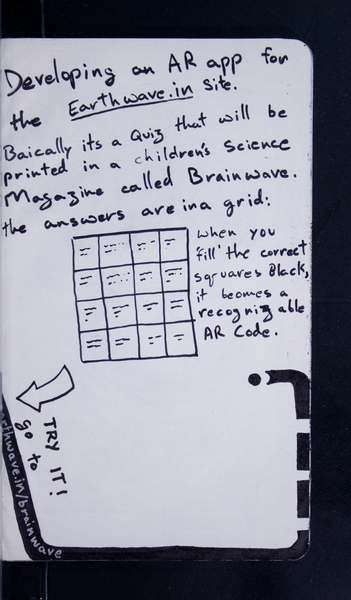 Developing an AR app for
the Earthwave.in site.
Baically its a Quiz that will be
printed in a children's science
Magazine called Brainwave.
the answers are in a grid:
when you
'fill' the correct
sqyuares Black,
it becomes a
recognizable
AR Code.
TRY IT!
go to
earthwave.in/brainwave